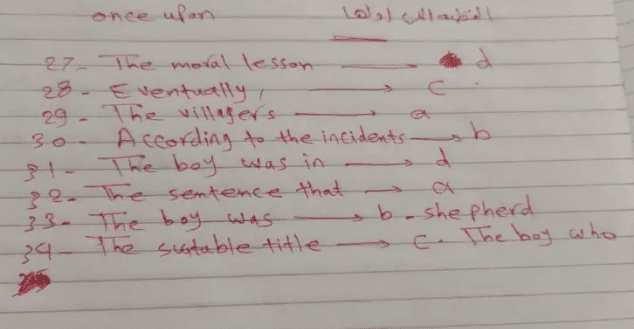 once upon القطعة التي أولها
27- The moral lesson → d
28- Eventually, → c
29- The villagers → a
30- According to the incidents → b
31- The boy was in → d
32- The sentence that → a
33- The boy was → b- shepherd
34- The sutable title → c. The boy who